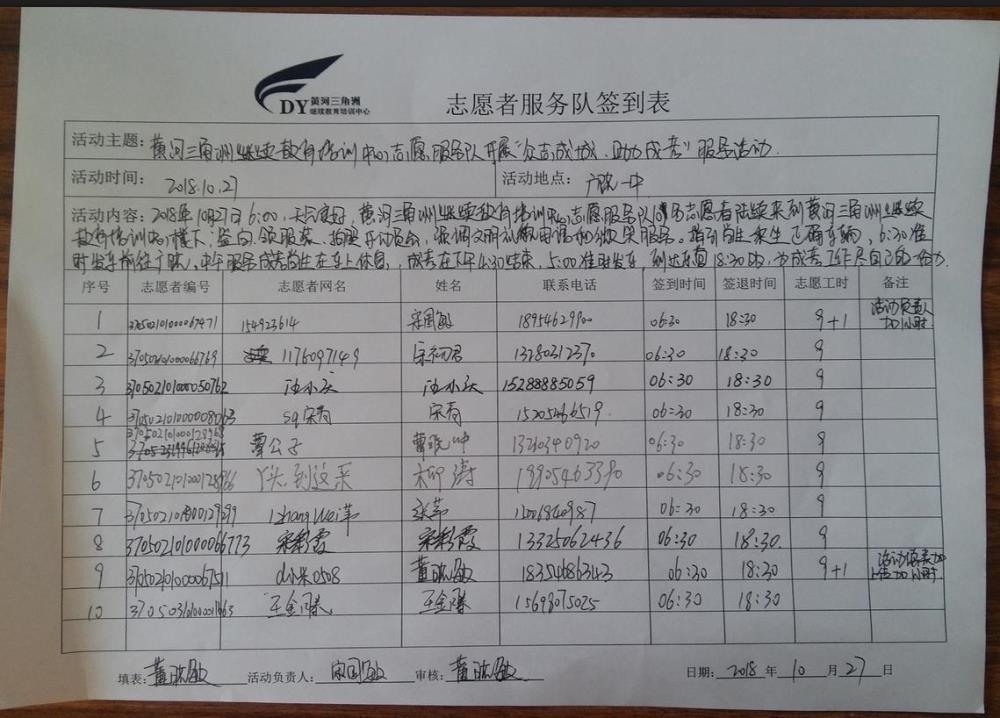 DY 黄河三角洲
继续教育培训中心
志愿者服务队签到表
活动主题: 黄河三角洲继续教育培训中心志愿服务队开展“众志成城、助力成考”服务活动.
活动时间: 2018.10.27 活动地点: 广饶一中
活动内容: 2018年10月27日6:00,天气良好,黄河三角洲继续教育培训中心志愿服务队10名志愿者陆续来到黄河三角洲继续
教育培训中心楼下,签向领服装、拍照开动员会,强调文明礼貌用语和微笑服务。指引考生乘坐正确车辆,6:30准
时发车前往广饶.中午服务成考考生在车上休息,成考在下午4:30结束,5:00准时发车,到达东营18:30,为成考工作尽自己的
序号 志愿者编号 志愿者网名 姓名 联系电话 签到时间 签退时间 志愿工时 备注
1 154923614 宋国敏 06:30 18:30 9+1 活动负责人加1小时
2 370502101000066769 1176097149 13280312370 06:30 18:30 9
3 15288885059 06:30 18:30 9
4 sq宋荷 宋荷 15205466519 06:30 18:30 9
5 曹公子 13210340920 06:30 18:30 9
6 丫头到这来 柳涛 18905463390 06:30 18:30 9
7 06:30 18:30 9
8 370502101000066773 宋彩霞 宋彩霞 13325062436 06:30 18:30 9
9 d小米0508 董晓敏 06:30 18:30 9+1
10 15698075025 06:30 18:30
填表: 董晓敏 活动负责人: 宋国敏 审核: 董晓敏 日期: 2018 年 10 月 27 日